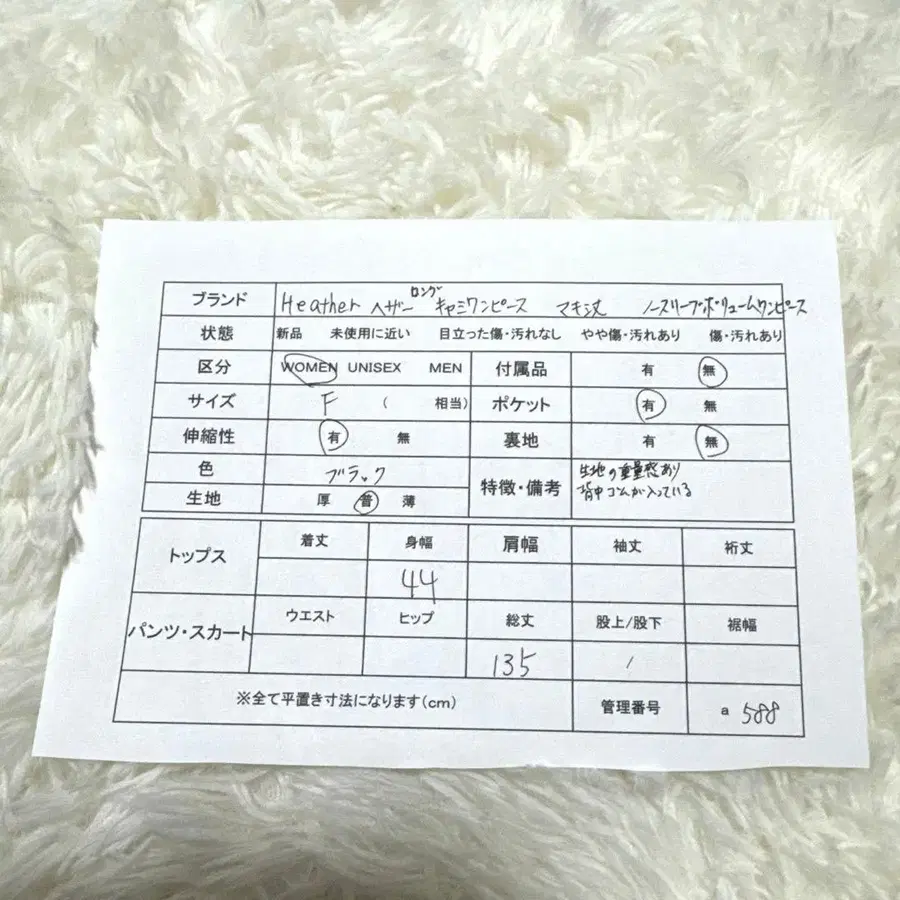 ブランド Heather ヘザー ロング キャミワンピース マキシ丈 ノースリーブボリュームワンピース
状態 新品 未使用に近い 目立った傷・汚れなし やや傷・汚れあり 傷・汚れあり
区分 WOMEN UNISEX MEN 付属品 有 無
サイズ F ( 相当) ポケット 有 無
伸縮性 有 無 裏地 有 無
色 ブラック 特徴・備考 生地の重量感あり
生地 厚 普 薄 背中ゴムが入っている
トップス 着丈 身幅 肩幅 袖丈 裄丈
44
パンツ・スカート ウエスト ヒップ 総丈 股上/股下 裾幅
135 /
※全て平置き寸法になります(cm) 管理番号 a 588